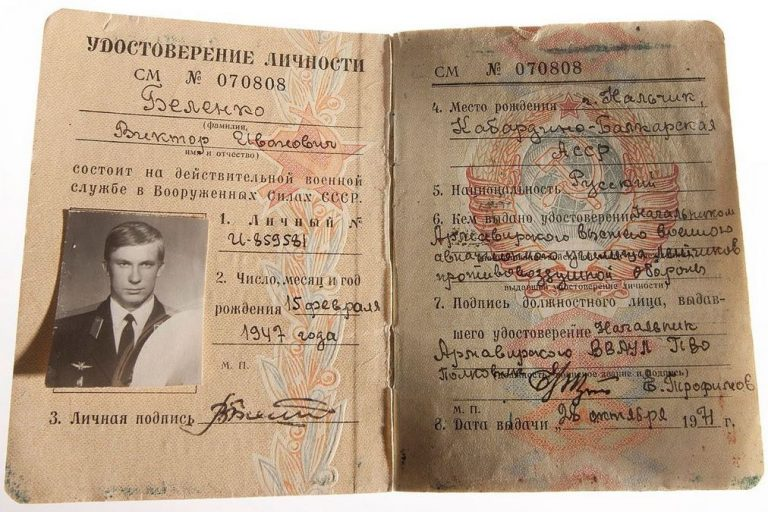 УДОСТОВЕРЕНИЕ ЛИЧНОСТИ
СМ № 070808
Беленко
(фамилия,
Виктор Иванович
имя и отчество)
состоит на действительной военной
службе в Вооруженных Силах СССР.
1. Личный №
И-859581
2. Число, месяц и год
рождения 15 февраля
1947 года
М. П.
3. Личная подпись
СМ № 070808
4. Место рождения г. Нальчик,
Кабардино-Балкарская
АССР
5. Национальность Русский
6. Кем выдано удостоверение Начальником
Армавирского высшего военного
авиационного училища лётчиков
противовоздушной обороны
выдавшей удостоверение личности)
7. Подпись должностного лица, выдав-
шего удостоверение Начальник
Армавирского ВВАУЛ ПВО
Полковник Б. Трофимов
звание и подпись)
М. П.
8. Дата выдачи „28 октября 1971 г.